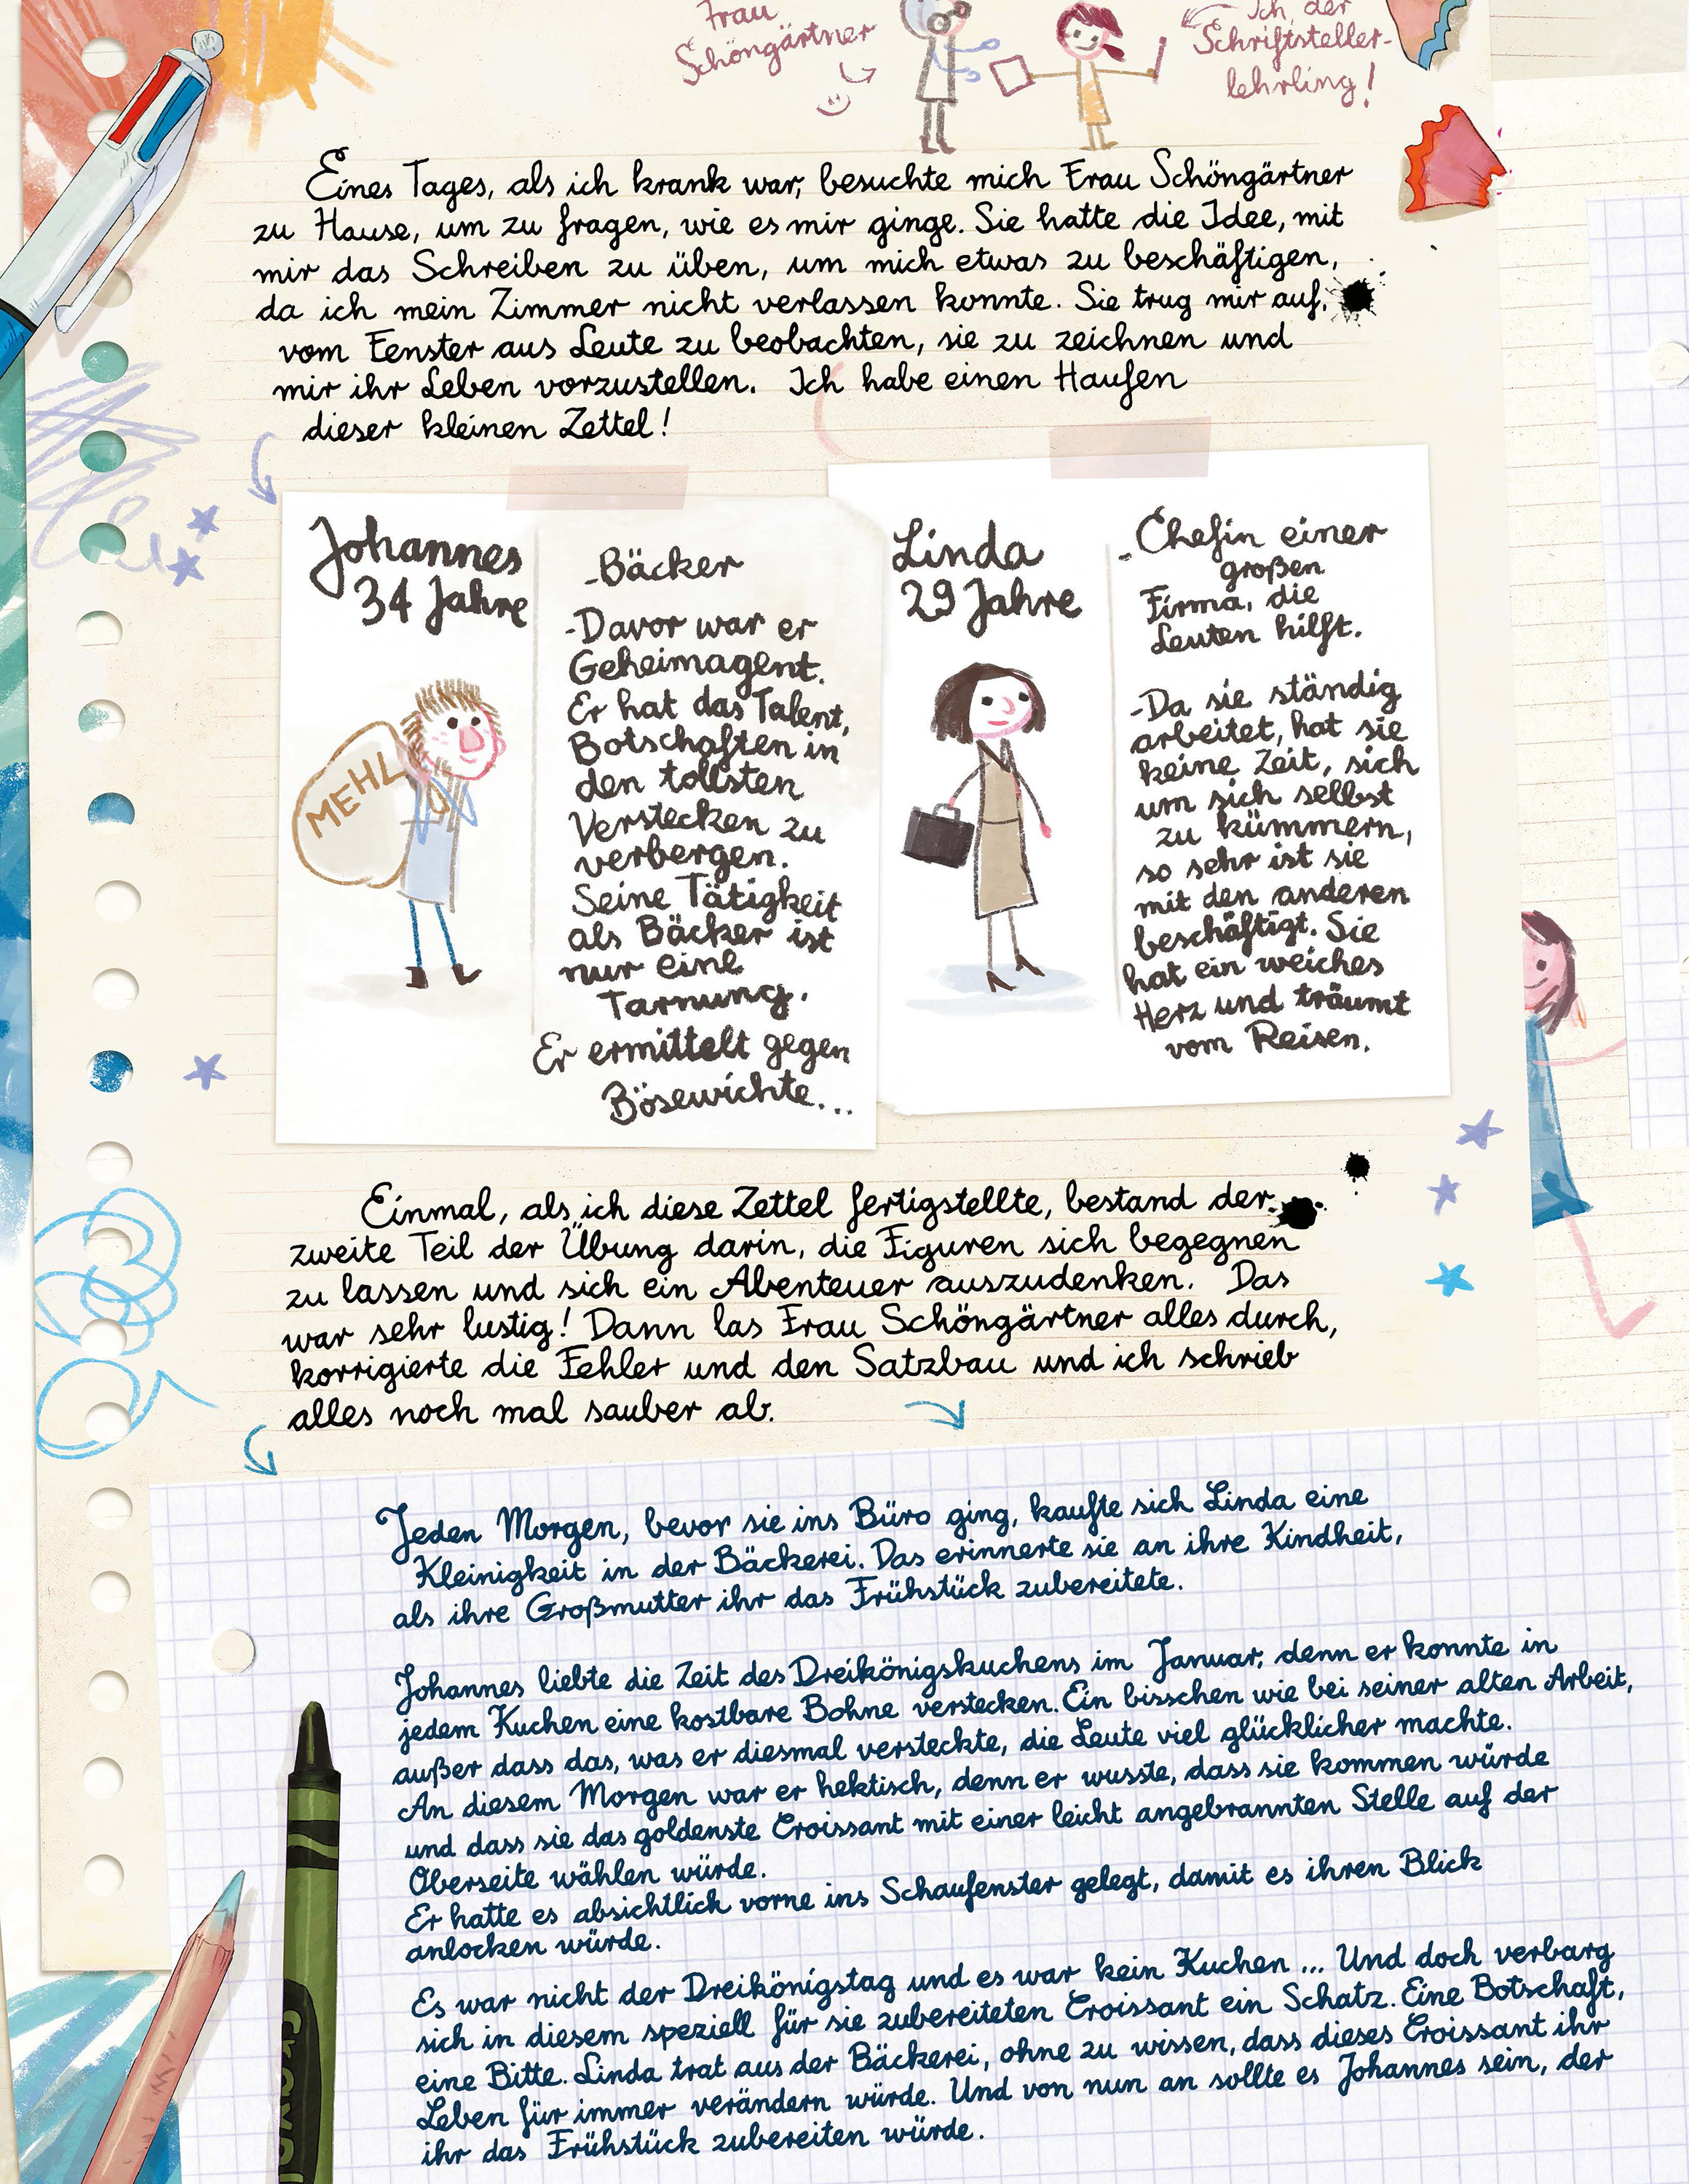 Frau
Schöngärtner
Ich, der
Schriftsteller-
lehrling!
Eines Tages, als ich krank war, besuchte mich Frau Schöngärtner
zu Hause, um zu fragen, wie es mir ginge. Sie hatte die Idee, mit
mir das Schreiben zu üben, um mich etwas zu beschäftigen,
da ich mein Zimmer nicht verlassen konnte. Sie trug mir auf,
vom Fenster aus Leute zu beobachten, sie zu zeichnen und
mir ihr Leben vorzustellen. Ich habe einen Haufen
dieser kleinen Zettel!
Johannes
34 Jahre
MEHL
-Bäcker
-Davor war er
Geheimagent.
Er hat das Talent,
Botschaften in
den tollsten
Verstecken zu
verbergen.
Seine Tätigkeit
als Bäcker ist
nur eine
Tarnung.
Er ermittelt gegen
Bösewichte...
Linda
29 Jahre
-Chefin einer
großen
Firma, die
Leuten hilft.
-Da sie ständig
arbeitet, hat sie
keine Zeit, sich
um sich selbst
zu kümmern,
so sehr ist sie
mit den anderen
beschäftigt. Sie
hat ein weiches
Herz und träumt
vom Reisen.
Einmal, als ich diese Zettel fertigstellte, bestand der
zweite Teil der Übung darin, die Figuren sich begegnen
zu lassen und sich ein Abenteuer auszudenken. Das
war sehr lustig! Dann las Frau Schöngärtner alles durch,
korrigierte die Fehler und den Satzbau und ich schrieb
alles noch mal sauber ab.
Jeden Morgen, bevor sie ins Büro ging, kaufte sich Linda eine
Kleinigkeit in der Bäckerei. Das erinnerte sie an ihre Kindheit,
als ihre Großmutter ihr das Frühstück zubereitete.
Johannes liebte die Zeit des Dreikönigskuchens im Januar, denn er konnte in
jedem Kuchen eine kostbare Bohne verstecken. Ein bisschen wie bei seiner alten Arbeit,
außer dass das, was er diesmal versteckte, die Leute viel glücklicher machte.
An diesem Morgen war er hektisch, denn er wusste, dass sie kommen würde
und dass sie das goldenste Croissant mit einer leicht angebrannten Stelle auf der
Oberseite wählen würde.
Er hatte es absichtlich vorne ins Schaufenster gelegt, damit es ihren Blick
anlocken würde.
Es war nicht der Dreikönigstag und es war kein Kuchen ... Und doch verbarg
sich in diesem speziell für sie zubereiteten Croissant ein Schatz. Eine Botschaft,
eine Bitte. Linda trat aus der Bäckerei, ohne zu wissen, dass dieses Croissant ihr
Leben für immer verändern würde. Und von nun an sollte es Johannes sein, der
ihr das Frühstück zubereiten würde.